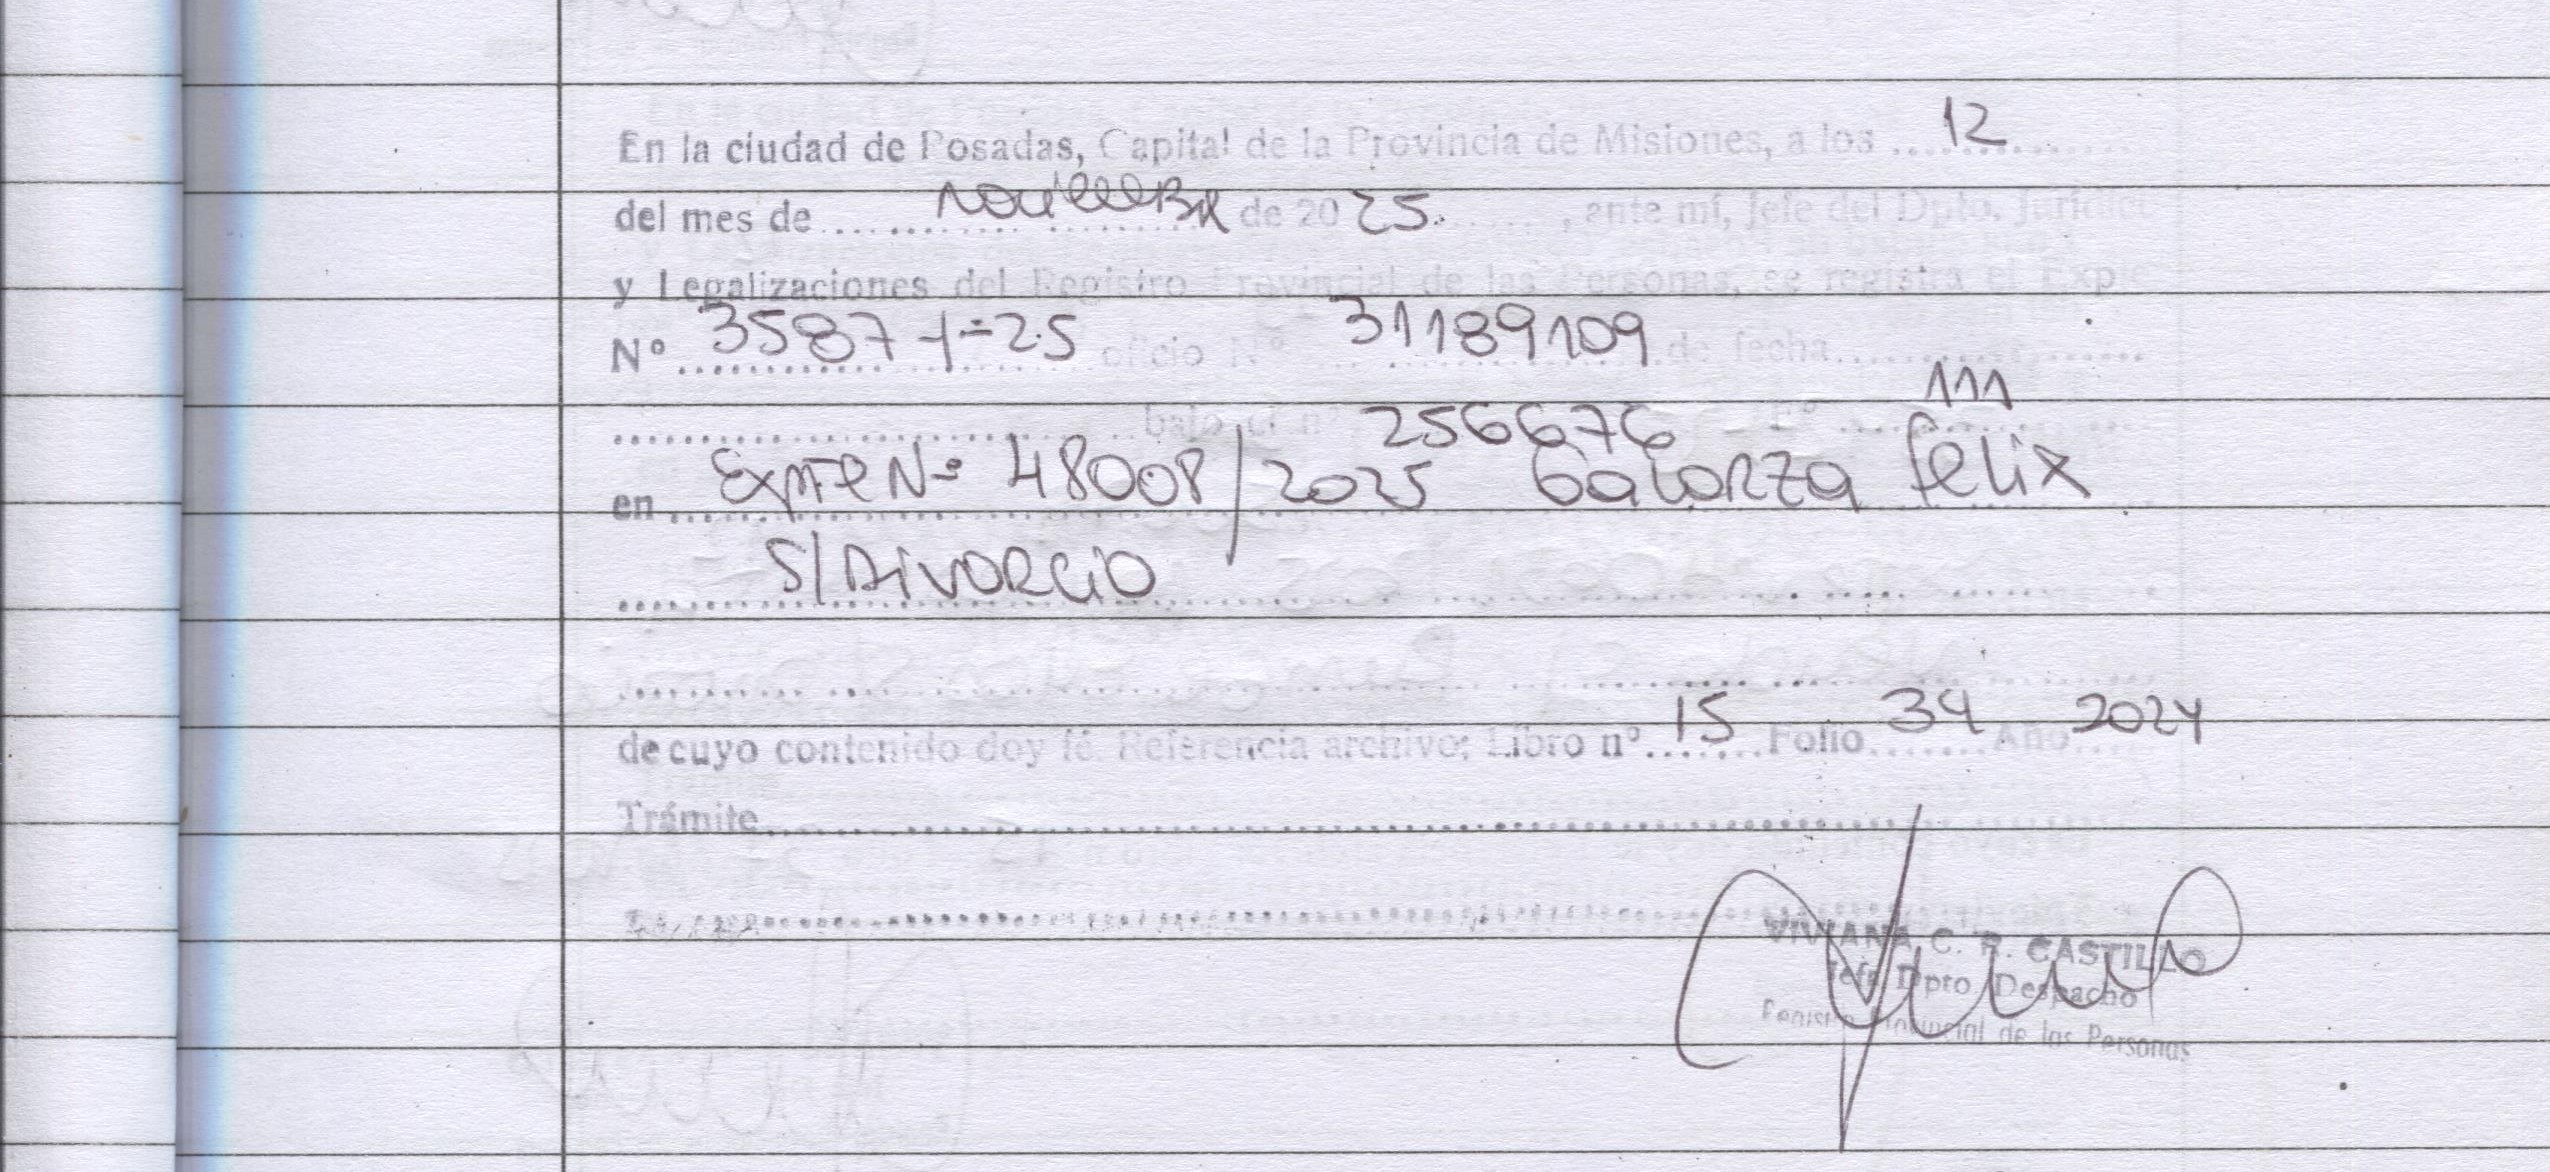 En la ciudad de Posadas, Capital de la Provincia de Misiones, a los 12
del mes de noviembre de 2025, ante mí, Jefe del Dpto. Jurídic
y Legalizaciones del Registro Provincial de las Personas, se registra el Expte
Nº 3587-I-25 oficio Nº 31189109 de fecha
bajo el nº 256676 Fº 111
en Expte Nº 48008/2025 Galorza Felix
S/Divorcio
de cuyo contenido doy fé. Referencia archivo: Libro nº 15 Folio 34 Año 2024
Trámite
VIVIANA C. R. CASTILLO
Jefa Dpto Despacho
Registro Provincial de las Personas